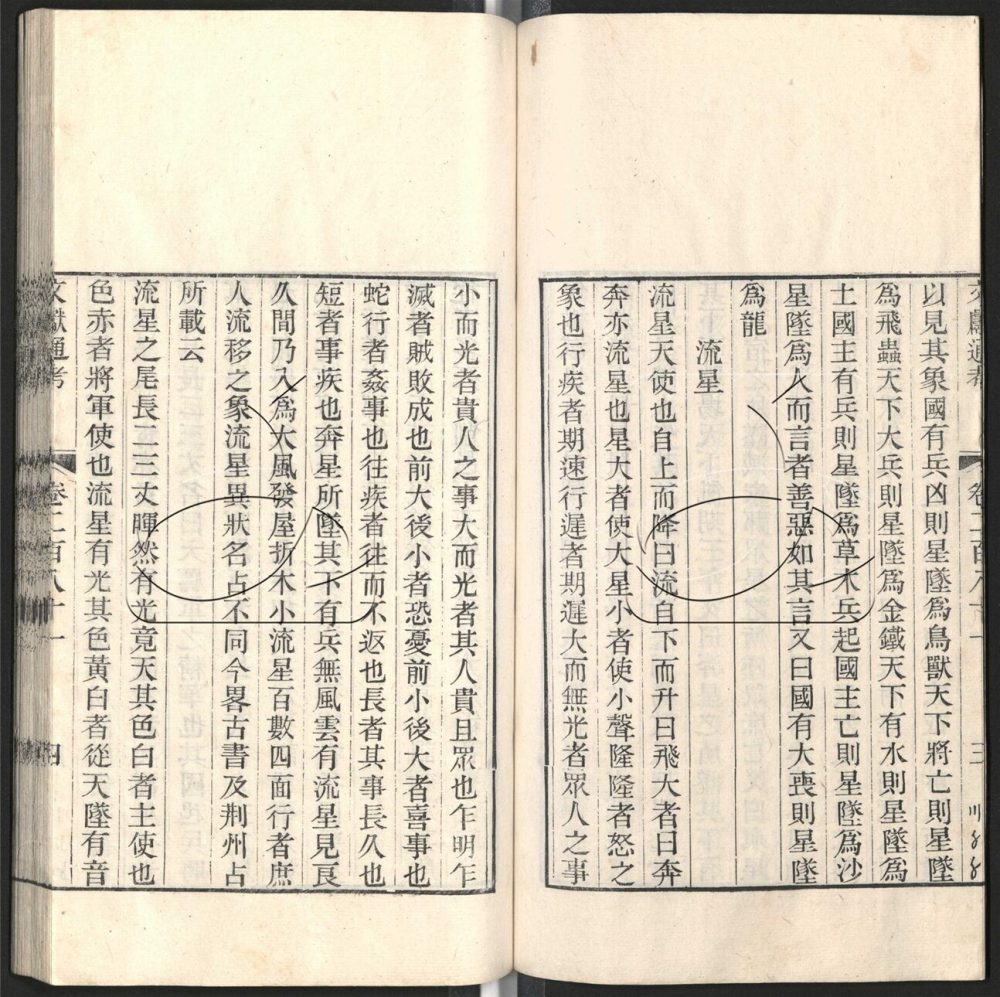 文獻通考 卷二百八十一 三
以見其象國有兵凶則星墜爲鳥獸天下將亡則星墜
爲飛蟲天下大兵則星墜爲金鐵天下有水則星墜爲
土國主有兵則星墜爲草木兵起國主亡則星墜爲沙
星墜爲人而言者善惡如其言又曰國有大喪則星墜
爲龍
流星
流星天使也自上而降曰流自下而升曰飛大者曰奔
奔亦流星也星大者使大星小者使小聲隆隆者怒之
象也行疾者期速行遲者期遲大而無光者眾人之事
小而光者貴人之事大而光者其人貴且眾也乍明乍
滅者賊敗成也前大後小者恐憂前小後大者喜事也
蛇行者姦事也往疾者往而不返也長者其事長久也
短者事疾也奔星所墜其下有兵無風雲有流星見良
久間乃入爲大風發屋折木小流星百數四面行者庶
人流移之象流星異狀名占不同今畧古書及荆州占
所載云
流星之尾長二三丈暉然有光竟天其色白者主使也
色赤者將軍使也流星有光其色黃白者從天墜有音
文獻通考 卷二百八十一 四